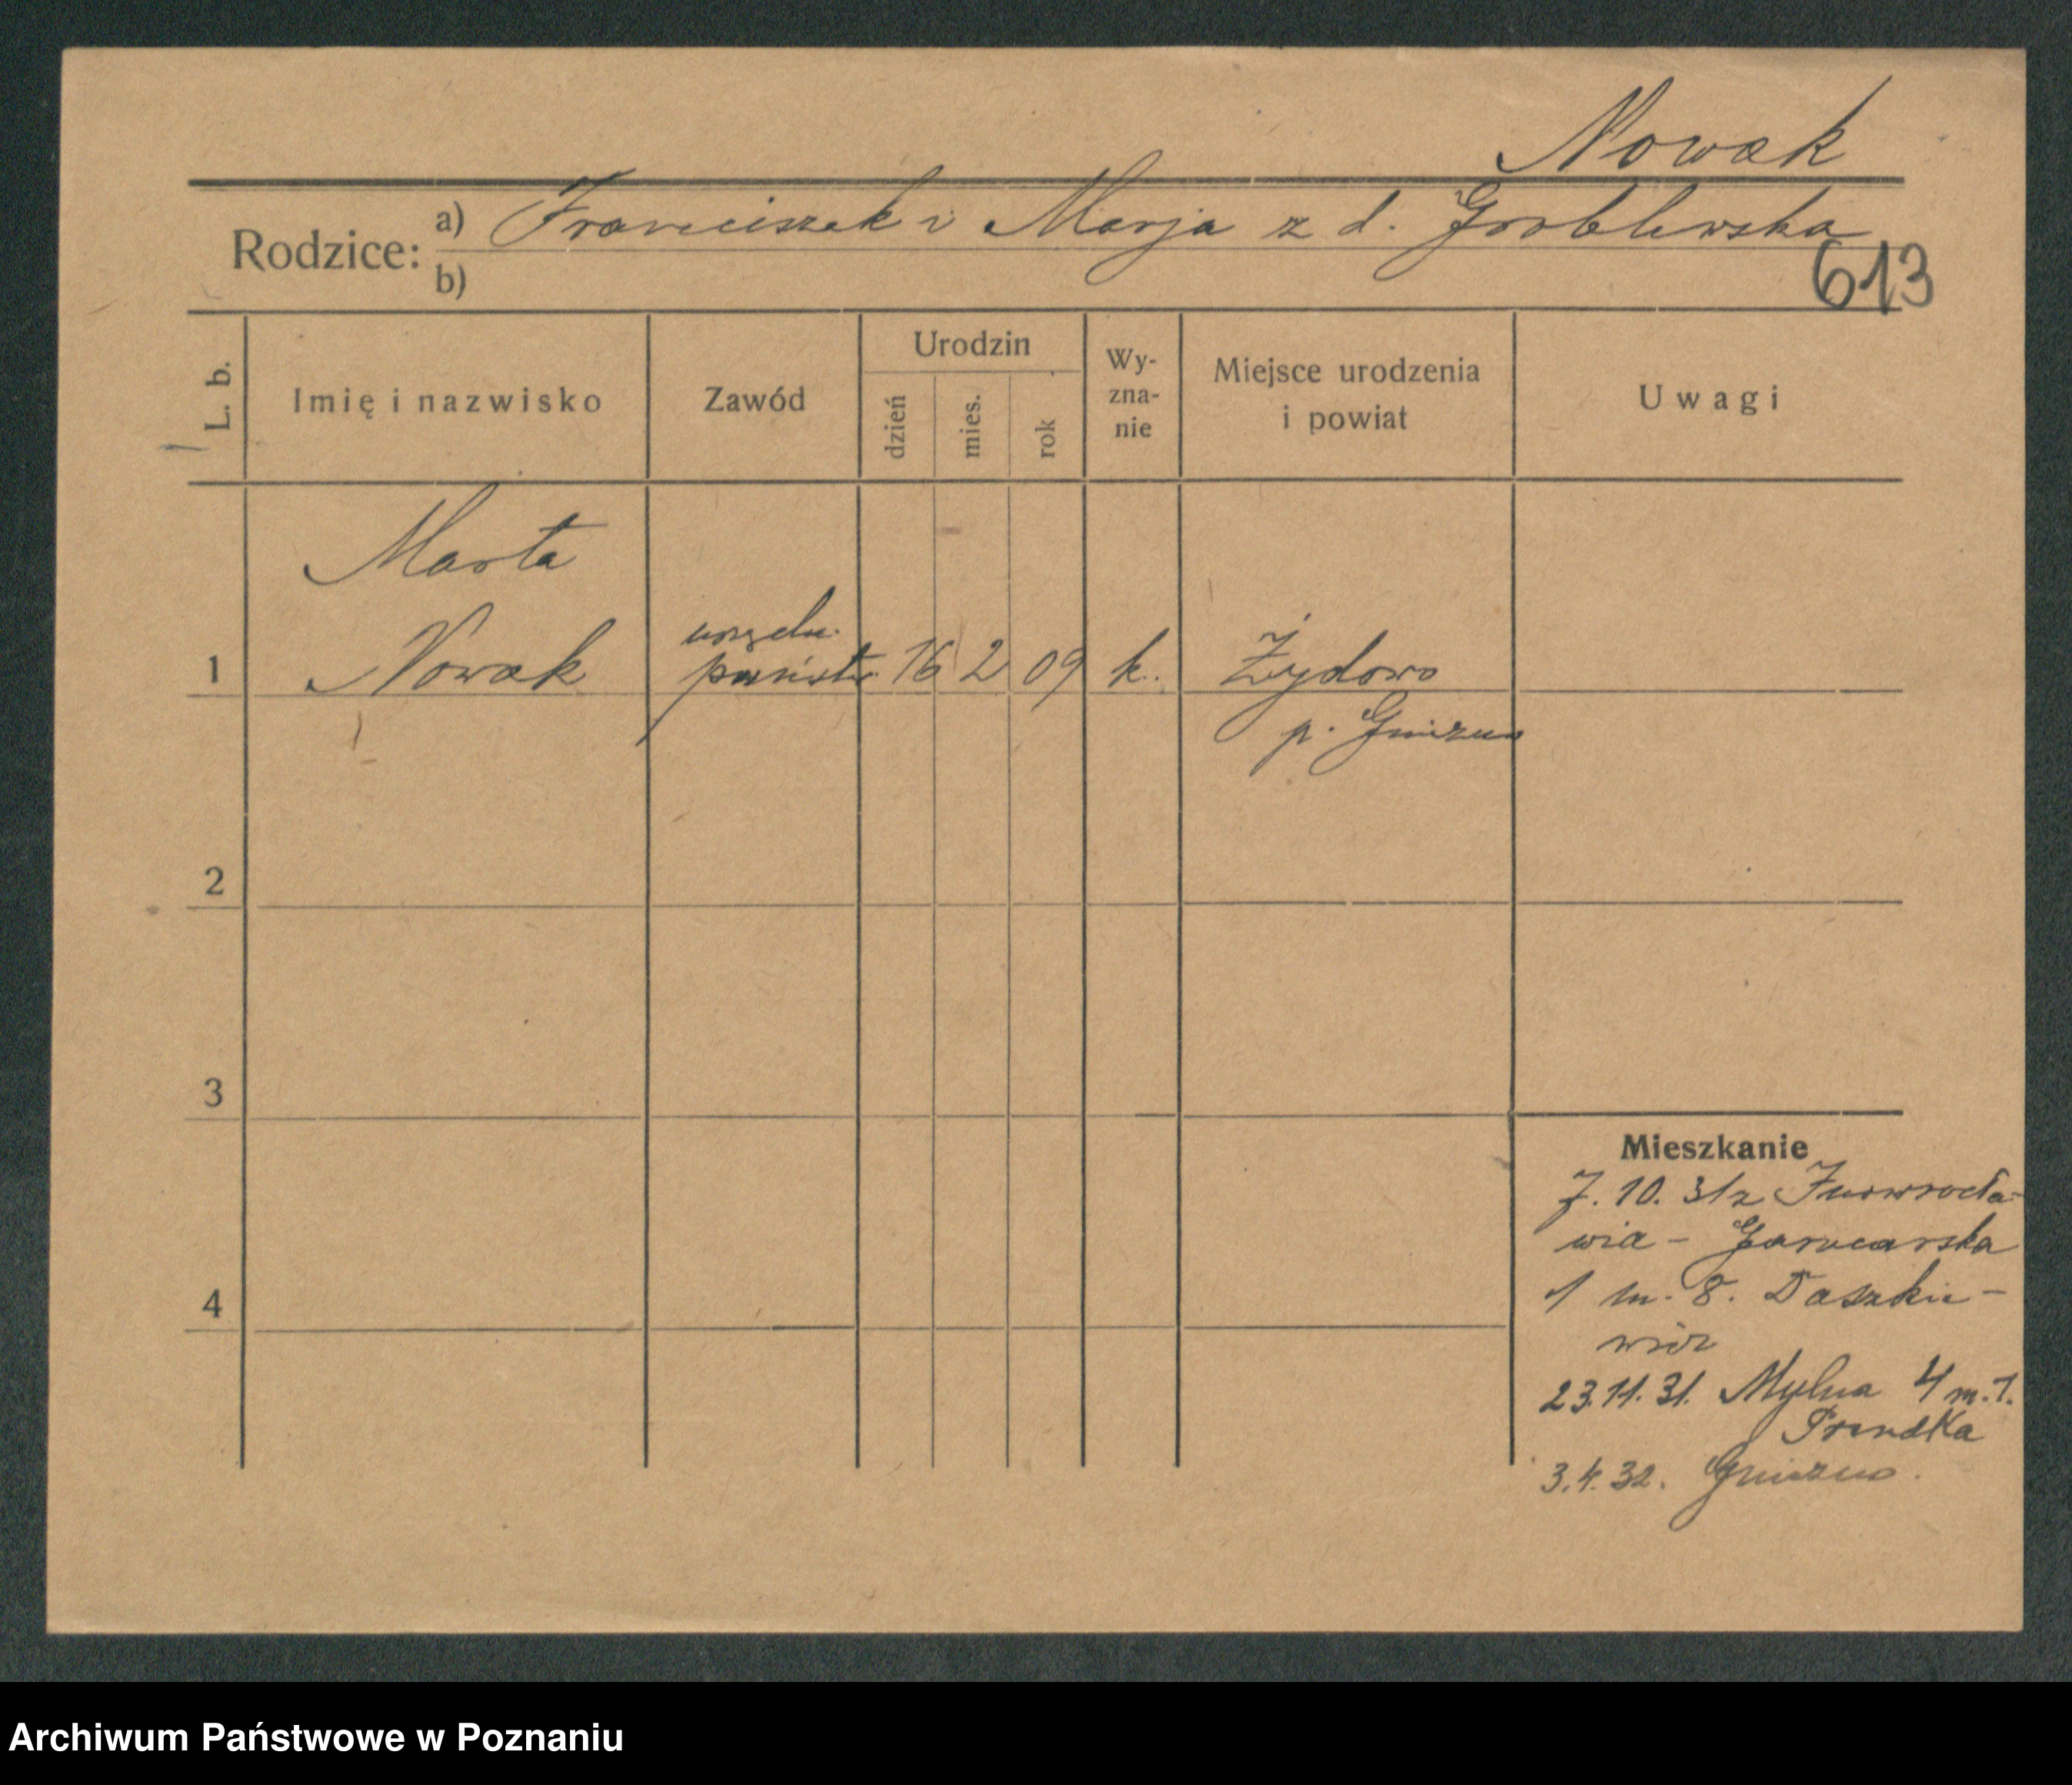 Nowak
Rodzice: a) Franciszek i Marja z d. Groblewska
b)
613
L. b. Imię i nazwisko Zawód Urodzin dzień mies. rok Wy-zna-nie Miejsce urodzenia i powiat Uwagi
Marta
urzędn.
1 Nowak państw. 16 2 09 k. Żydowo
p. Gniezno
2
3
4
Mieszkanie
7. 10. 31 z Inowrocła-
wia - Garncarska
1 m. 8. Daszkie-
wicz
23.11.31. Mylna 4 m. 7.
3.4.32. Gniezno.
Archiwum Państwowe w Poznaniu